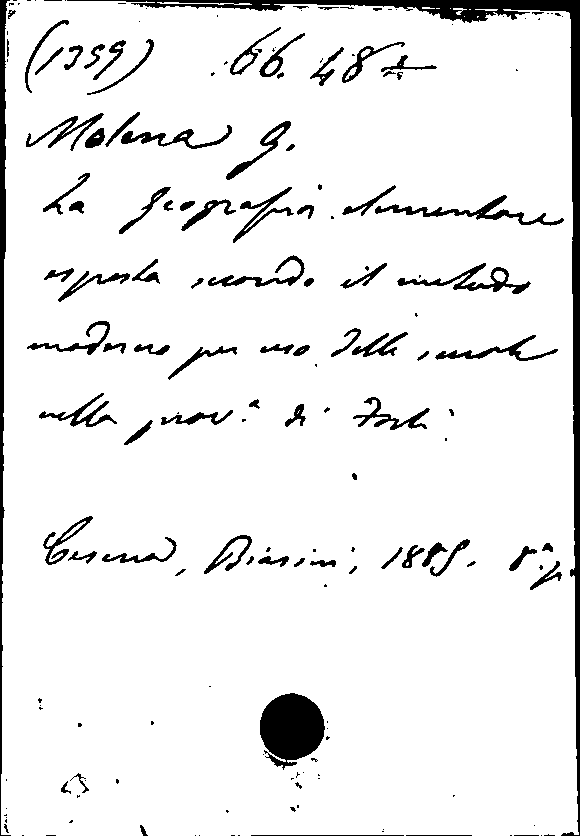 (1359) 66. 48
Molena G.
La geografia elementare
esposta secondo il metodo
moderno per uso delle scuole
nella prov.ª di Forlì
Cesena, Biasini, 1885. 8.º p.